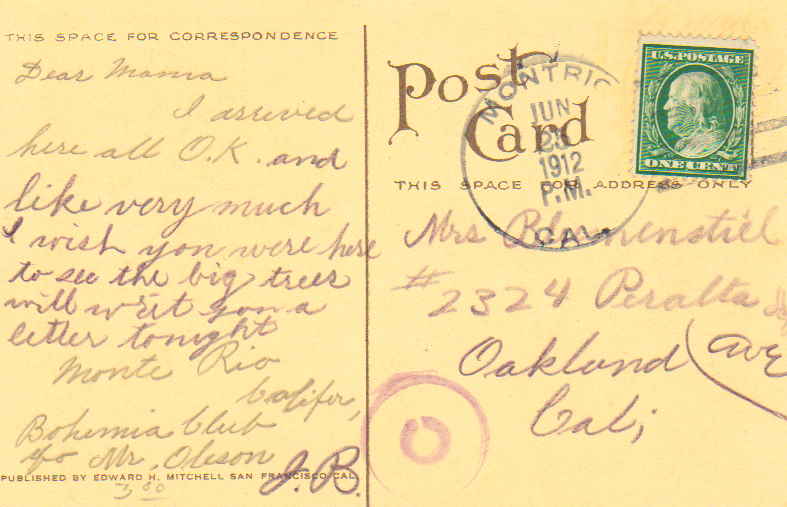 THIS SPACE FOR CORRESPONDENCE
Dear Mama
I arrived
here all O.K. and
like very much
I wish you were here
to see the big trees
will writ you a
letter tonight
Monte Rio
Califor,
Bohemia Club
c/o Mr. Oleson
J.B.
PUBLISHED BY EDWARD H. MITCHELL SAN FRANCISCO CAL.
Post
Card
MONTRIO
JUN
1912
P.M.
CAL.
U.S. POSTAGE
ONE CENT
THIS SPACE FOR ADDRESS ONLY
Mrs Blumenstiel
# 2324 Peralta
Ave
Oakland
Cal;